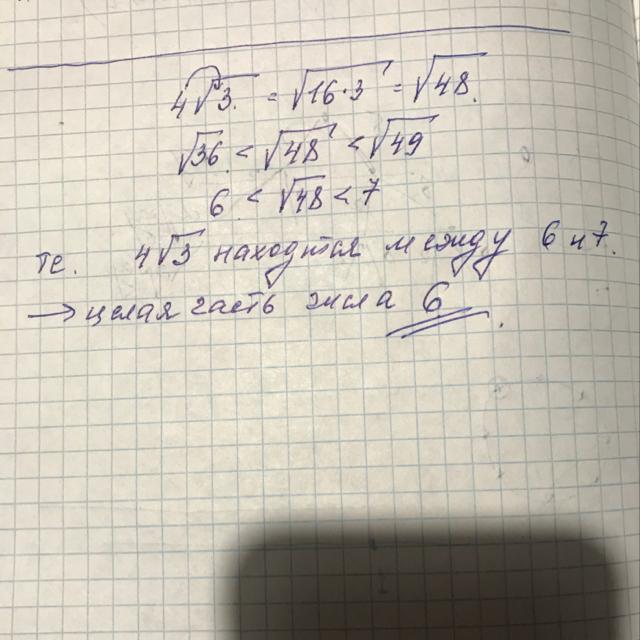 4√3 = √16·3 = √48.
√36 < √48 < √49
6 < √48 < 7
Те. 4√3 находится между 6 и 7.
→ целая часть числа 6.